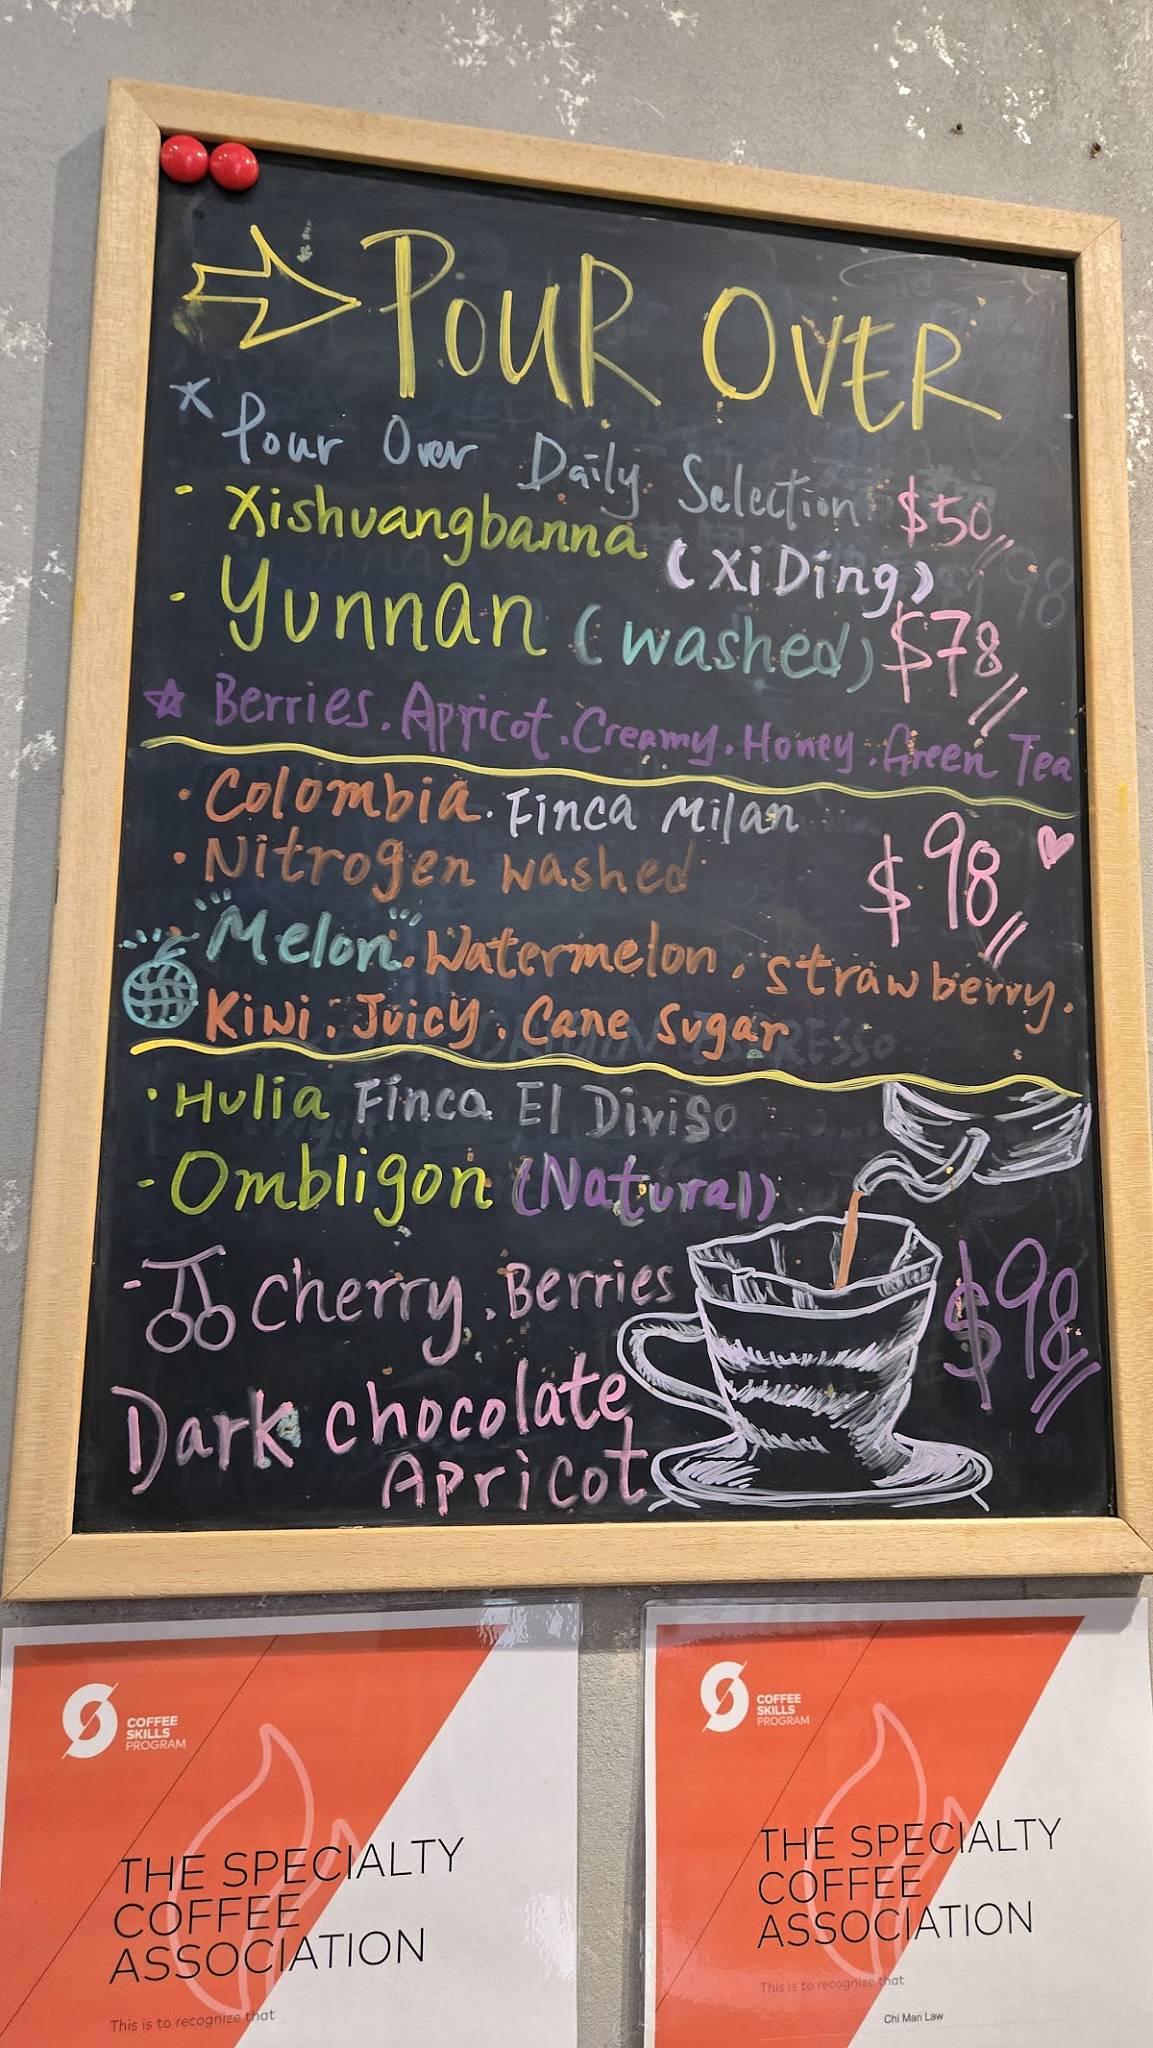 POUR OVER
Pour Over Daily Selection $50
- Xishuangbanna (XiDing)
- Yunnan (washed) $78
Berries. Apricot. Creamy. Honey. Green Tea
• Colombia. Finca Milan
• Nitrogen washed $98
Melon. Watermelon. strawberry.
Kiwi. Juicy. Cane Sugar
• Hulia Finca El Diviso
- Ombligon (Natural)
- Cherry. Berries $98
Dark chocolate
Apricot
COFFEE
SKILLS
PROGRAM
THE SPECIALTY
COFFEE
ASSOCIATION
This is to recognize that
COFFEE
SKILLS
PROGRAM
THE SPECIALTY
COFFEE
ASSOCIATION
This is to recognize that
Chi Man Law